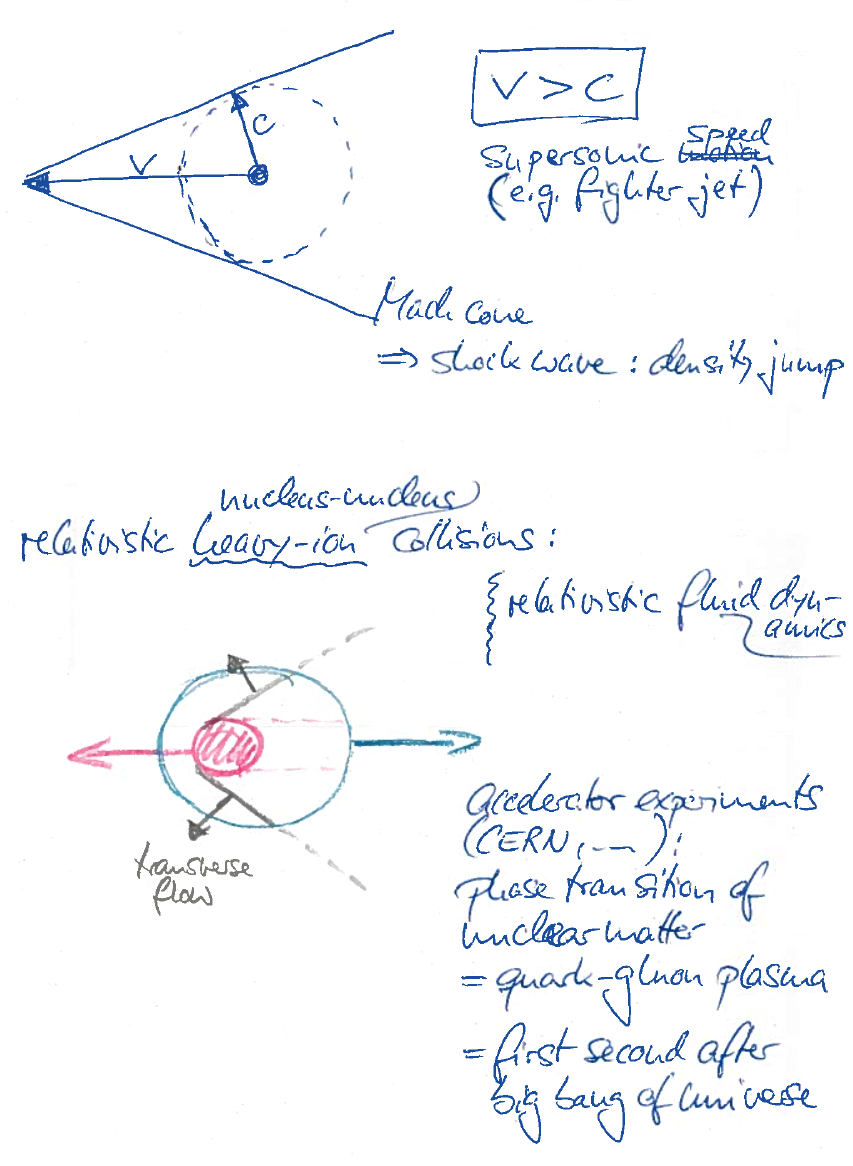 V > C
c
v
speed
supersonic motion
(e.g. fighter jet)
Mach cone
⇒ shock wave : density jump
nucleus-nucleus
relativistic heavy-ion collisions :
relativistic fluid dyn-
amics
accelerator experiments
(CERN, ...) :
transverse
flow
phase transition of
nuclear matter
= quark-gluon plasma
= first second after
big bang of universe